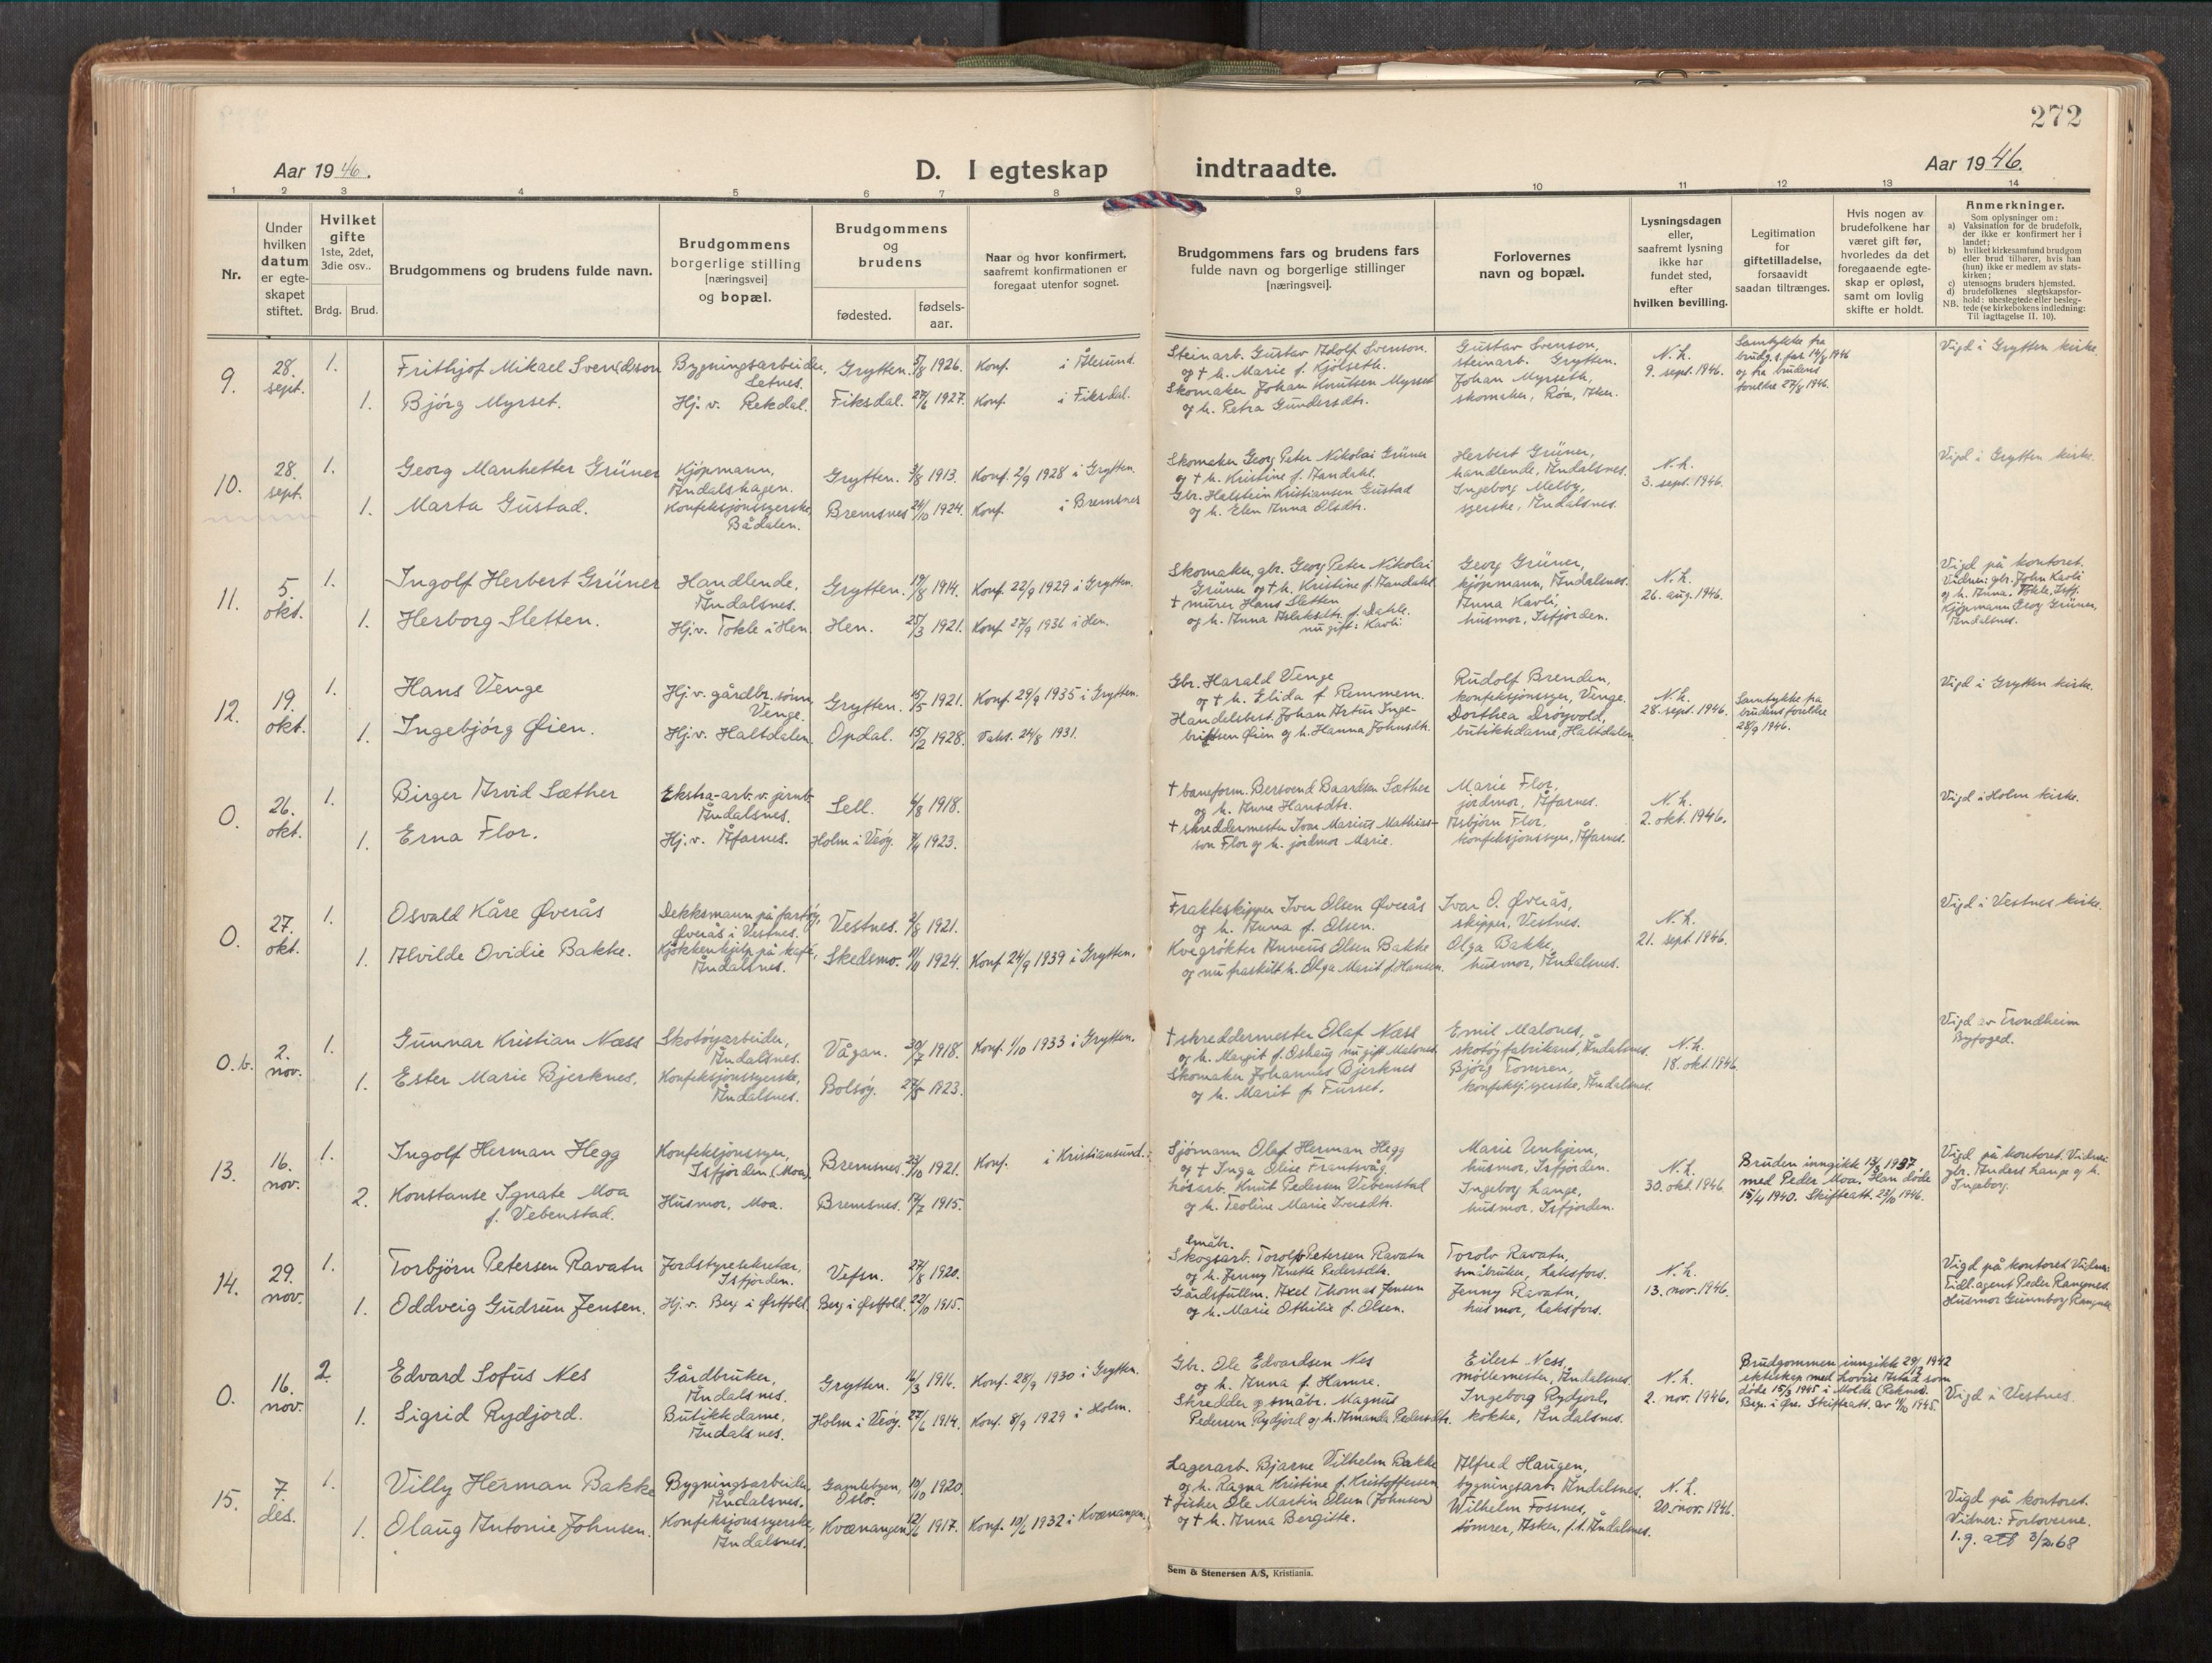 272
Aar 1946.
D. I egteskap indtraadte.
Aar 1946.
1 2 3 4 5 6 7 8 9 10 11 12 13 14
Nr.
Under hvilken datum er egteskapet stiftet.
Hvilket gifte 1ste, 2det, 3die osv..
Brdg. Brud.
Brudgommens og brudens fulde navn.
Brudgommens borgerlige stilling [næringsvei] og bopæl.
Brudgommens og brudens
fødested.
fødsels-aar.
Naar og hvor konfirmert, saafremt konfirmationen er foregaat utenfor sognet.
Brudgommens fars og brudens fars fulde navn og borgerlige stillinger [næringsvei].
Forlovernes navn og bopæl.
Lysningsdagen eller, saafremt lysning ikke har fundet sted, efter hvilken bevilling.
Legitimation for giftetilladelse, forsaavidt saadan tiltrænges.
Hvis nogen av brudefolkene har været gift før, hvorledes da det foregaaende egteskap er opløst, samt om lovlig skifte er holdt.
Anmerkninger.
Som oplysninger om:
a) Vaksination for de brudefolk, der ikke er konfirmert her i landet;
b) hvilket kirkesamfund brudgom eller brud tilhører, hvis han (hun) ikke er medlem av statskirken;
c) utensogns bruders hjemsted.
d) brudefolkenes slegtskapsforhold: ubeslegtede eller beslegtede (se kirkebokens indledning: Til iagttagelse II. 10).
NB.
9. 28. sept. 1. Frithjof Mikael Sven(d)son Bygningsarbeider, Setnes. Grytten. 5/8 1926. Konf. i Ålesund. Steinarb. Gustav Adolf Svenson. og † h. Marie f. Kjölseth. Gustav Svenson, steinarb. Grytten. N. h. 9. sept. 1946. Samtykke fra brudg.s. far 14/9 1946 og fra brudens foreldre 27/8 1946. Vigd i Grytten kirke.
1. Bjórg Myrset. Hj. v. Rekdal. Fiksdal. 27/6 1927. Konf. i Fiksdal. Skomaker Johan Knutsen Myrset og h. Petra Gundersdtr. Johan Myrseth, skomaker, Róa, Aker.
10. 28. sept. 1. Georg Manhetter Grüner Kjópmann, Åndalshagen. Grytten. 3/8 1913. Konf. 2/9 1928 i Grytten. Skomaker Georg Peter Nikolai Grüner og † h. Kristine f. Aandahl. Herbert Grüner, handlende, Åndalsnes. N. h. 3. sept. 1946. Vigd i Grytten kirke.
1. Marta Gustad. Konfeksjonssyerske, Bådalen. Bremsnes 24/10 1924. Konf. i Bremsnes Gbr. Halstein Kristiansen Gustad og h. Elen Anna Olsdtr. Ingeborg Melby, syerske, Åndalsnes.
11. 5. okt. 1. Ingolf Herbert Grüner Handlende, Åndalsnes. Grytten. 19/8 1914. Konf. 22/9 1929 i Grytten. Skomaker, gbr. Georg Peter Nikolai Grüner og † h. Kristine f. Aandahl. Georg Grüner, kjópmann, Åndalsnes. N. h. 26. aug. 1946. Vigd på kontoret. Vidner: gbr. John Kavli og h. Anna. Tokle, Isfj. Kjópmann Georg Grüner, Åndalsnes.
1. Herborg Sletten. Hj.v. Tokle i Hen Hen. 25/3 1921. Konf. 27/9 1936 i Hen. † murer Hans Sletten og h. Anna Aslaksdtr. f. Dahle. nu gift: Kavli Anna Kavli, husmor, Isfjorden.
12. 19. okt. 1. Hans Venge Hj. v. gårdbr. sónn, Venge. Grytten. 15/5 1921. Konf. 29/9 1935 i Grytten. Gbr. Harald Venge og † h. Elida f. Remmem. Rudolf Brenden, konfeksjonssyer, Venge. N. h. 28. sept. 1946. Samtykke fra brudens foreldre 28/9 1946. Vigd i Grytten kirke.
1. Ingebjórg Øien. Hj.v. Haltdalen. Opdal. 15/2 1928. Vaks. 24/8 1931. Handelsbest. Johan Artur Ingebrigtsen Øien og h. Hanna Johnsdtr. Dorthea Dróyvold, butikkdame, Haltdalen.
0. 26. okt. 1. Birger Arvid Sæther Ekstra-arb. v. jernb. Åndalsnes. Sell. 6/8 1918. † baneform. Bersvend Baardsen Sæther og h. Anne Hansdtr. Marie Flor, jordmor, Åfarnes. N. h. 2. okt. 1946. Vigd i Holm kirke.
1. Erna Flor. Hj. v. Åfarnes. Holm i Veóy. 9/4 1923. † skreddermester Ivar Marius Mathisson Flor og h. jordmor Marie. Asbjórn Flor, konfeksjonssyer, Åfarnes.
0. 27. okt. 1. Osvald Kåre Øverås Dekksmann på fartóy, Øverås i Vestnes. Vestnes. 2/8 1921. Frakteskipper Iver Olsen Øverås og h. Anna f. Olsen. Ivar O. Øverås, skipper, Vestnes. N. h. 21. sept. 1946. Vigd i Vestnes kirke.
1. Alvilde Ovidie Bakke. Kjókkenhjelp på kafé, Åndalsnes. Skedsmo. 11/11 1924. Konf. 24/9 1939 i Grytten. Kvegrókter Anneus Olsen Bakke og nu fraskilt h. Olga Marit f. Hansen. Olga Bakke, husmor, Åndalsnes.
0.b. 2. nov. 1. Gunnar Kristian Næss Skotóyarbeider, Åndalsnes. Vågan. 30/7 1918. Konf. 1/10 1933 i Grytten. † skreddermester Olaf Næss og h. Margit f. Oshaug nu gift Malones. Emil Malones, skotóyfabrikant, Åndalsnes. N. h. 18. okt. 1946 Vigd av Trondheim Byfoged.
1. Ester Marie Bjerknes. Konfeksjonssyerske, Åndalsnes. Bolsóy. 27/8 1923. Skomaker Johannes Bjerknes og h. Marit f. Furset. Bjórg Tomren, konfeksj.syerske, Åndalsnes.
13. 16. nov. 1. Ingolf Herman Hegg Konfeksjonssyer, Isfjorden (Moa). Bremsnes 23/10 1921. Konf. i Kristiansund. Sjómann Olaf Herman Hegg og † Inga Elise Frantsvåg. Marie Unhjem, husmor, Isfjorden. N. h. 30. okt. 1946 Bruden inngikk 13/8 1937 med Peder Moa. Han dóde 15/4 1940. Skifteatt. 23/10 1946. Vigd på kontoret. Vidner: gbr. Anders Lange og h. Ingeborg.
2. Konstanse Ignate Moa f. Vebenstad. Husmor, Moa. Bremsnes. 14/7 1915. Lósarb. Knut Pedersen Vebenstad og h. Teoline Marie Iversdtr. Ingeborg Lange, husmor. Isfjorden.
14. 29. nov. 1. Torbjórn Petersen Ravatn Jordstyresekretær, Isfjorden. Vefsn. 27/8 1920. Småbr. Skogsarb. Torolf Petersen Ravatn og h. Jenny Anette Pedersdtr. Torolv Ravatn, småbruker, Laksfors. N. h. 13. nov. 1946. Vigd på kontoret. Vidner: Tidl. agent Peder Rangnes. Husmor Gunnbor Rangnes
1. Oddveig Gudrun Jensen. Hj. v. Berg i Østfold. Berg i Østfold. 22/10 1915. Gårdsfullm. Axel Thomas Jensen og h. Marie Othilie f. Olsen. Jenny Ravatn, husmor, Laksfors.
0. 16. nov. 2. Edvard Sofus Nes Gårdbruker, Åndalsnes. Grytten. 16/3 1916. Konf. 28/9 1930 i Grytten. Gbr. Ole Edvardsen Nes og h. Anna f. Hamre. Eilert Ness, móllemester, Åndalsnes. N. h. 2. nov. 1946. Brudgommen inngikk 29/12 1942 ekteskap med Lovise Astad som dóde 15/3 1945 i Molde (Reknes). Begr. i Óre. Skifteatt. av 11/10 1945. Vigd i Vestnes.
1. Sigrid Rydjord. Butikkdame, Åndalsnes. Holm i Veóy. 27/6 1914. Konf. 8/9 1929 i Holm. Skredder og småbr. Magnus Pedersen Rydjord og h. Amanda Pedersdtr. Ingeborg Rydjord, kokke, Åndalsnes.
15. 7. des. 1. Villy Herman Bakke Bygningsarbeider, Åndalsnes. Gamlebyen, Oslo. 10/10 1920. Lagerarb. Bjarne Vilhelm Bakke og h. Ragna Kristine f. Kristoffersen Alfred Haugen, bygningsarb. Åndalsnes. N. h. 20. nov. 1946. Vigd på kontoret. Vidner: Forloverne. 1. g. att 3/2.68
1. Olaug Antonie Johnsen. Konfeksjonssyerske, Åndalsnes. Kvænangen 12/6 1917. Konf. 10/6 1932 i Kvænangen. † fisker Ole Martin Olsen (Johnsen) og † h. Anna Bergitte. Wilhelm Fossnes, tómrer, Asker, f.t. Åndalsnes.
Sem & Stenersen A/S, Kristiania.